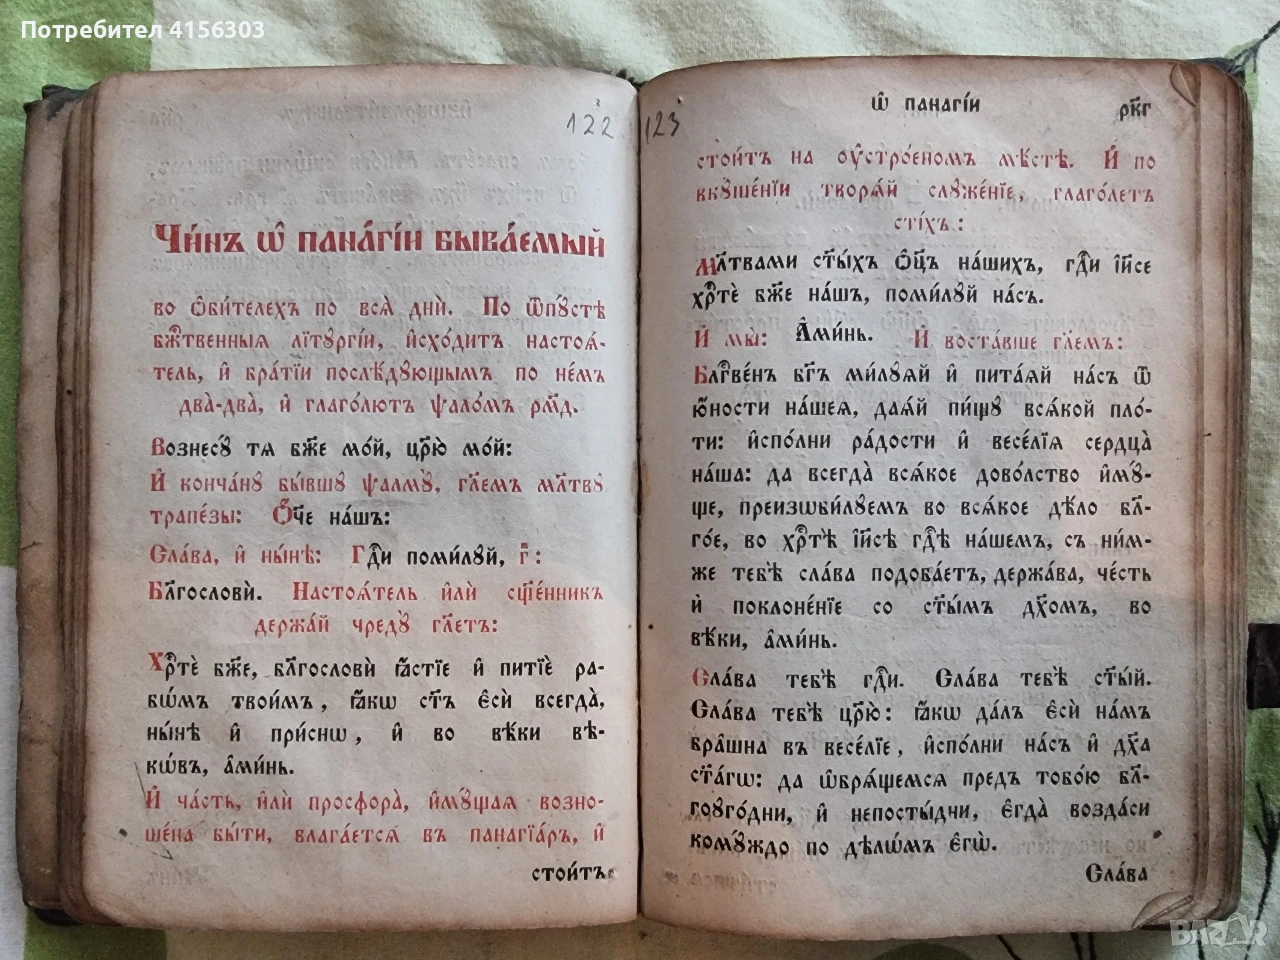 Потребител 4156303
122
Чи́нъ ѡ҆ панагі́и быва́емый
во ѻ҆би́телехъ по всѧ̑ дни̑. По ѿпꙋ́стѣ
бж҃твенныѧ лїтꙋргі́и, и҆схо́дитъ настоѧ́-
тель, и҆ бра́тїи послѣ́дꙋющымъ по не́мъ
два̀-два̀, и҆ глаго́лютъ ѱало́мъ рм҃д.
Вознесꙋ́ тѧ бж҃е мо́й, цр҃ю̀ мо́й:
И҆ конча́нꙋ бы́вшꙋ ѱалмꙋ̀, гл҃емъ мл҃твꙋ
трапе́зы: Ѻ҆́ч҃е на́шъ:
Сла́ва, и҆ ны́нѣ: Гдⷭ҇и поми́лꙋй, г҃:
Бл҃гословѝ. Настоѧ́тель и҆лѝ сщ҃е́нникъ
держа́й чредꙋ̀ гл҃етъ:
Хрⷭ҇тѐ бж҃е, бл҃гословѝ ꙗ҆́стїе и҆ питїѐ ра-
бѡ́мъ твои̑мъ, ꙗ҆́кѡ ст҃ъ є҆сѝ всегда̀,
ны́нѣ и҆ при́снѡ, и҆ во вѣ́ки вѣ-
кѡ́въ, а҆ми́нь.
И҆ ча́сть, и҆лѝ просфора̀, и҆мꙋ́щаѧ возно-
ше́на бы́ти, влага́етсѧ въ панагїа́ръ, и҆
стои́тъ
123
Ѡ҆ панагі́и
рк҃г
стои́тъ на ᲂу҆стро́еномъ мѣ́стѣ. И҆ по
вкꙋше́нїи творѧ́й слꙋже́нїе, глаго́летъ
сті́хъ:
Мл҃твами ст҃ы́хъ ѻ҆тє́цъ на́шихъ, гдⷭ҇и і҆и҃се
хрⷭ҇тѐ бж҃е на́шъ, поми́лꙋй на́съ.
И҆ мы̀: А҆ми́нь. И҆ воста́вше гл҃емъ:
Блг҃ве́нъ бг҃ъ ми́лꙋѧй и҆ пита́ѧй на́съ ѿ
ю҆́ности на́шеѧ, даѧ́й пи́щꙋ всѧ́кой пло́-
ти: и҆спо́лни ра́дости и҆ весе́лїѧ сердца̀
на́ша: да всегда̀ всѧ́кое дово́лство и҆мꙋ́-
ще, преизѡби́лꙋемъ во всѧ́кое дѣ́ло бл҃-
го́е, во хрⷭ҇тѣ̀ і҆и҃сѣ гдⷭ҇ѣ на́шемъ, съ ни́м-
же тебѣ̀ сла́ва подоба́етъ, держа́ва, че́сть
и҆ поклоне́нїе со ст҃ы́мъ дх҃омъ, во
вѣ́ки, а҆ми́нь.
Сла́ва тебѣ̀ гдⷭ҇и. Сла́ва тебѣ̀ ст҃ы́й.
Сла́ва тебѣ̀ цр҃ю̀: ꙗ҆́кѡ да́лъ є҆сѝ на́мъ
бра̑шна въ весе́лїе, и҆спо́лни на́съ и҆ дх҃а
ст҃а́гѡ: да ѡ҆брѧ́щемсѧ предъ тобо́ю бл҃-
гоꙋго́дни, и҆ непосты́дни, є҆гда̀ возда́си
комꙋ́ждо по дѣлѡ́мъ є҆гѡ̀.
Сла́ва
BAZAR